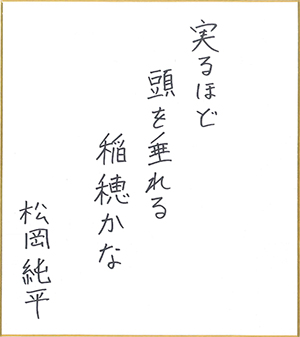 実るほど
頭を垂れる
稲穂かな
松岡純平